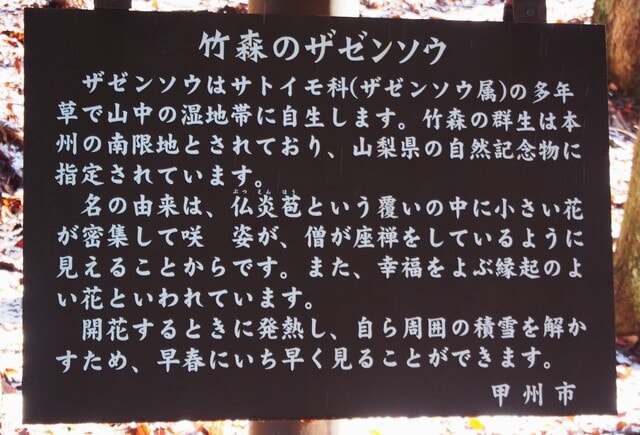 竹森のザゼンソウ
ザゼンソウはサトイモ科(ザゼンソウ属)の多年
草で山中の湿地帯に自生します。竹森の群生は本
州の南限地とされており、山梨県の自然記念物に
指定されています。
ぶつ えん ほう
名の由来は、仏炎苞という覆いの中に小さい花
が密集して咲　姿が、僧が座禅をしているように
見えることからです。また、幸福をよぶ縁起のよ
い花といわれています。
開花するときに発熱し、自ら周囲の積雪を解か
すため、早春にいち早く見ることができます。
甲州市